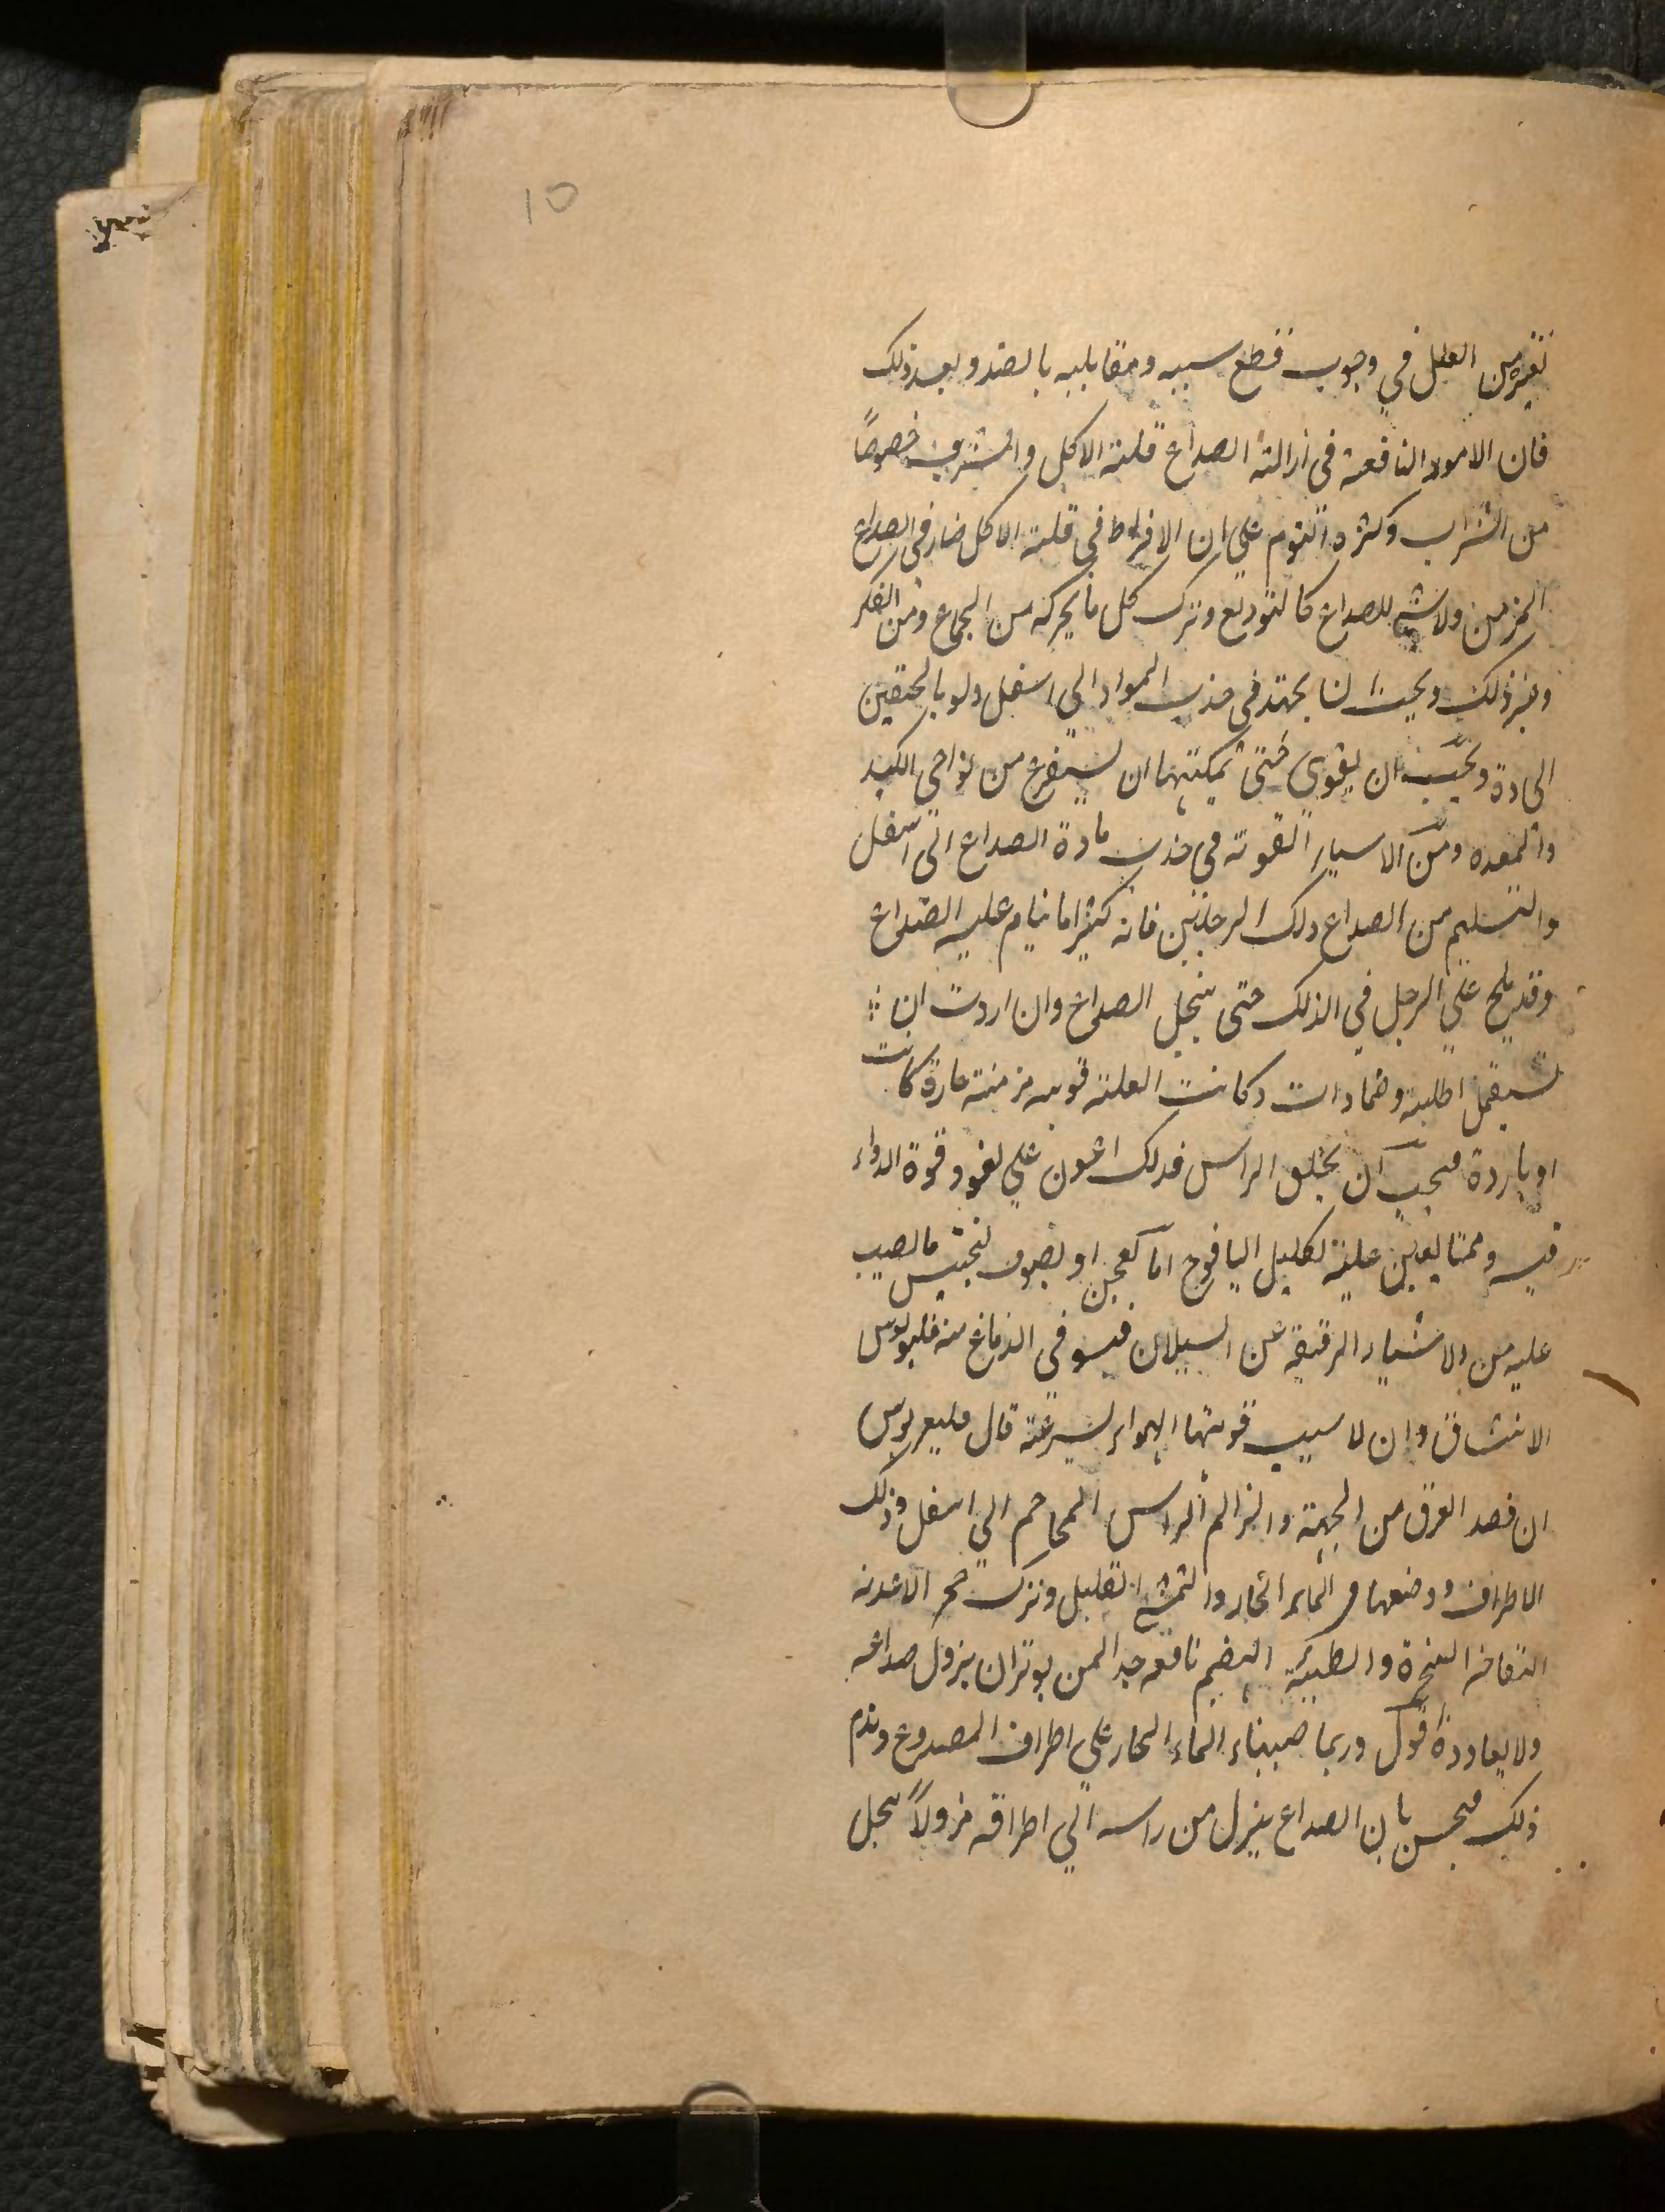 10
لغيره من العلل في وجوب قطع سببه ومقابلته بالضد وبعد ذلك
فان الامور النافعة في ازالته الصداع قلته الاكل والشرب خصوصاً
من الشراب وكثره النوم علي ان الافراط في قلته الاكل ضار في الصداع
المزمن ولا شي للصداع كالتوديع وترك كل ما يحركه من الجماع ومن الفكر
وغير ذلك ويجب ان يجتهد في جذب المواد الي اسفل ولو بالحقن
الحادة ويجب ان يقوي حتى تمكنها ان يستفرغ من نواحي الكبد
والمعده ومن الاشياء القوته في جذب مادة الصداع الى اسفل
والتسليم من الصداع دلك الرجلين فانه كثيرا ما ينام عليه الصداع
وقد يلح علي الرجل في الدلك حتى ينحل الصداع وان اردت ان
تستعمل اطلية وضمادات وكانت العلته قويه مزمنته حارة كانت
او باردة فيجب ان يحلق الراس فدلك اعون علي نفوذ قوة الدواء
فيه ومما يعين عليه تكليل اليافوخ اما بعجين او بصوف ليحبس ما يصب
عليه من الاشياء الرقيقه عن السيلان فيستوفي الدماغ منه
الانتشاق وان لا يسلب قوتها الهواء بسرعته قال فليغريوس
ان فصد العرق من الجبهة والزام الراس المحاجم الي اسفل ودلك
الاطراف ووضعها في الماء الحار والتمشي القليل وترك الاغذيه
النفاخه المبخرة والبطيئه الهضم نافعه جدا لمن يوثر ان يزول صداعه
ولا يعاوده اقول وربما صببنا الماء الحار علي اطراف المصدوع وندم
ذلك فيحس بان الصداع ينزل من راسه الي اطرافه نزولاً ينحل